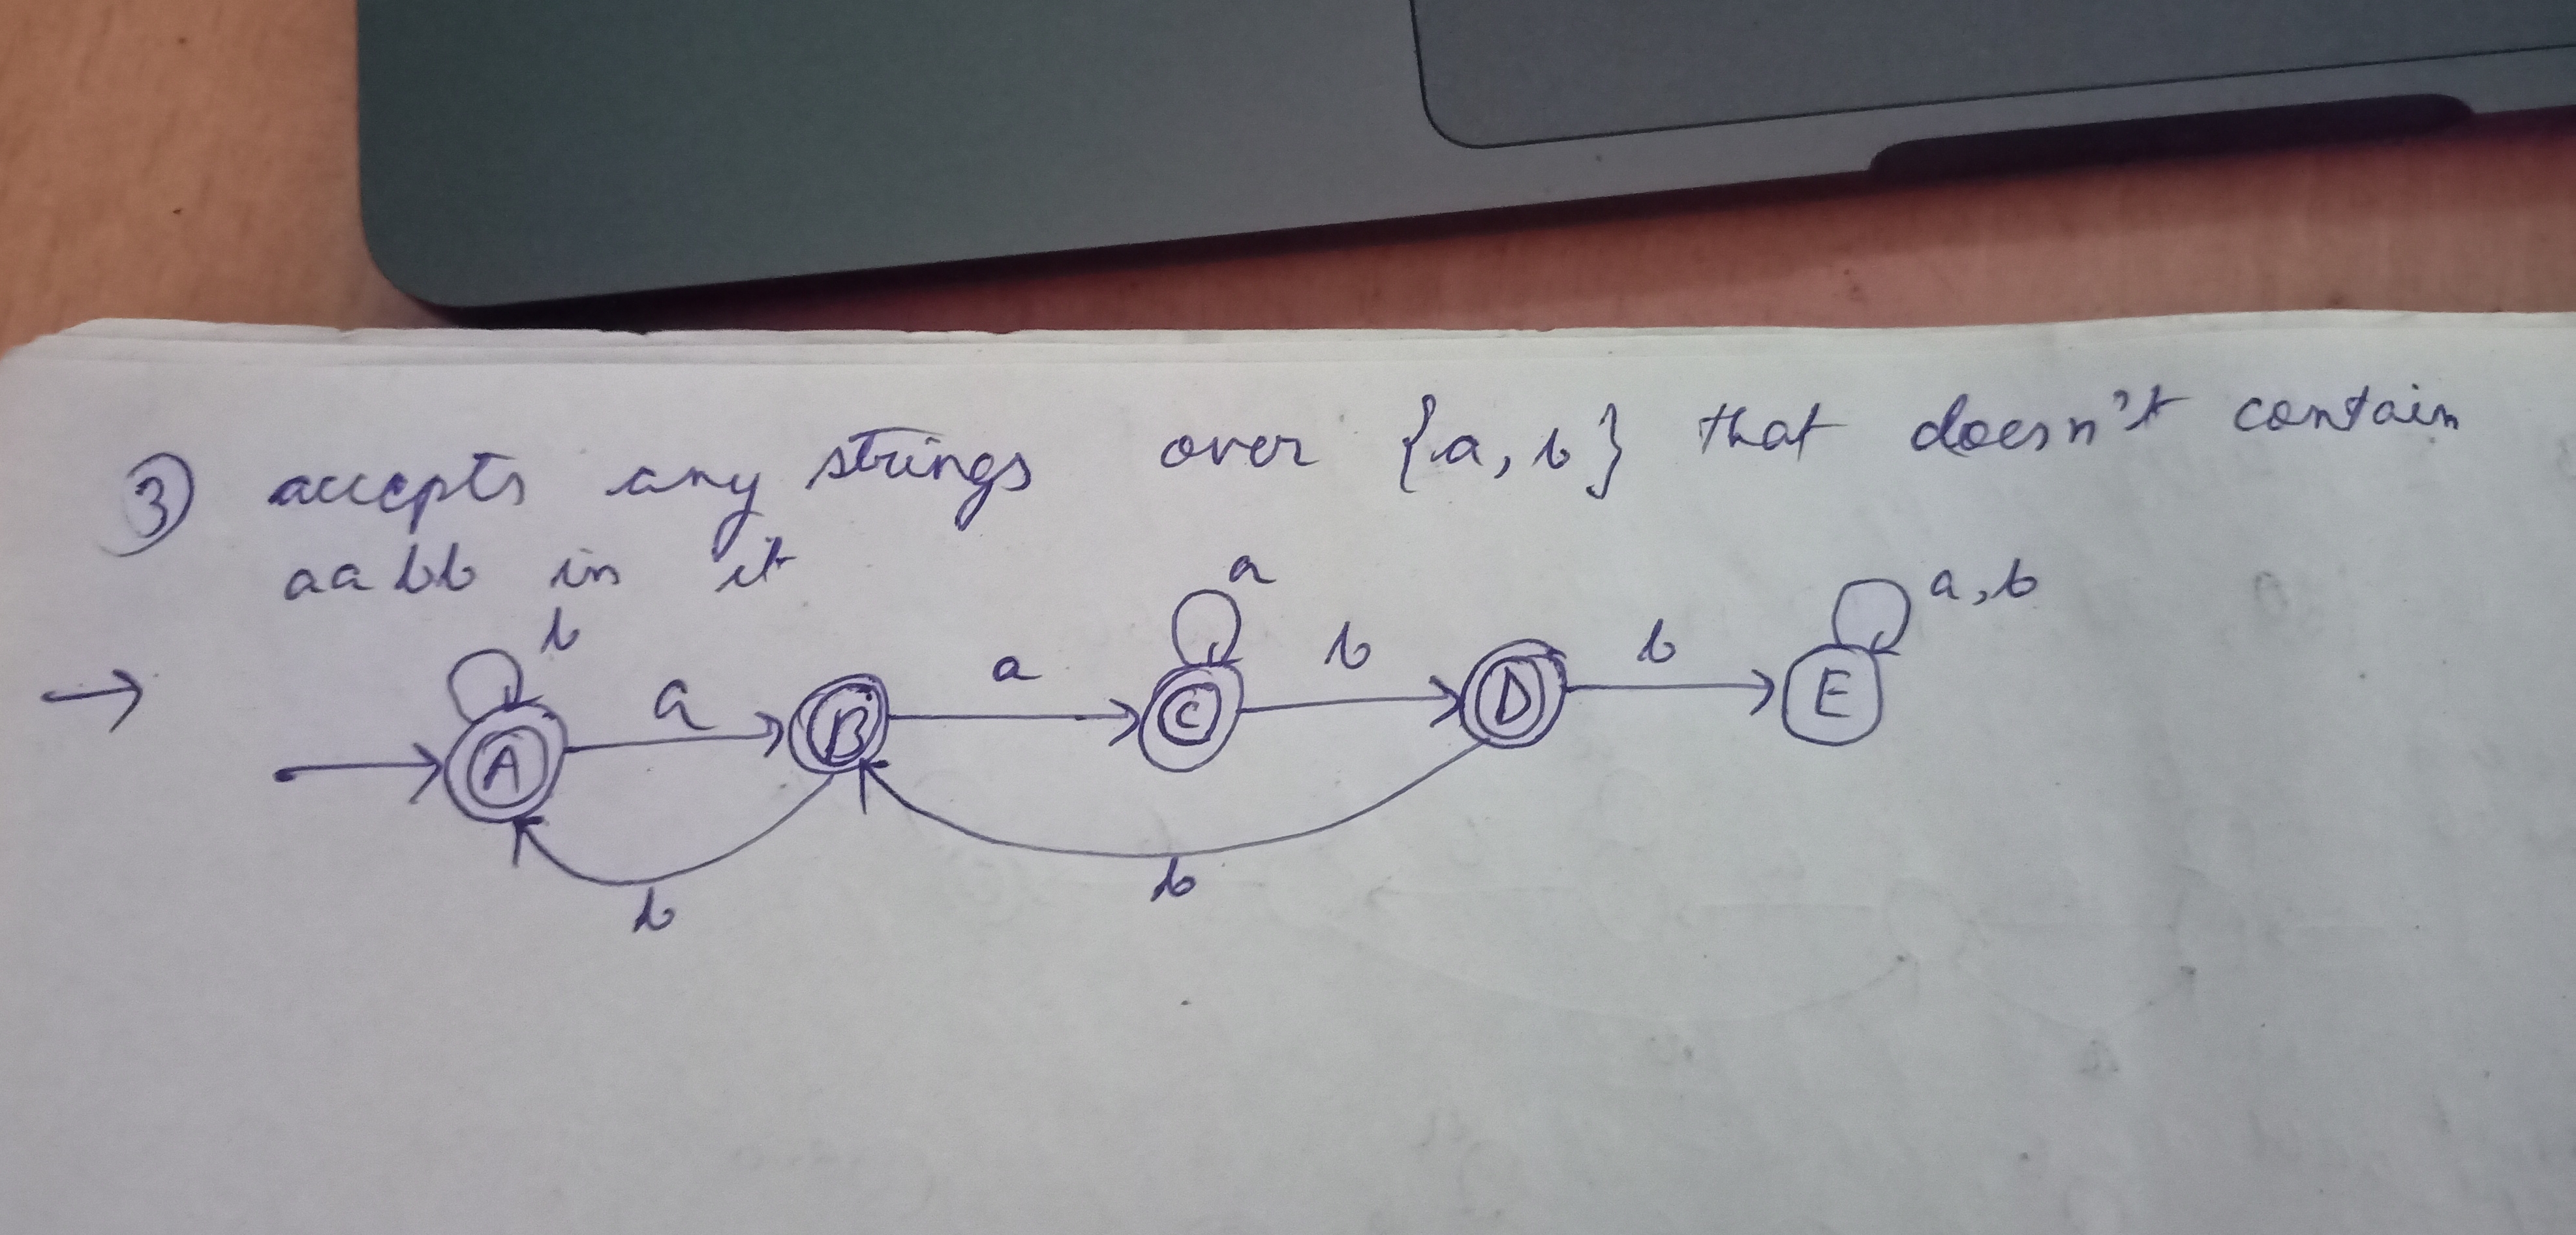 ③ accepts any strings over {a, b} that doesn't contain
aabb in it
a
a, b
b
b
b
a
a
→
A
B
C
D
E
b
b